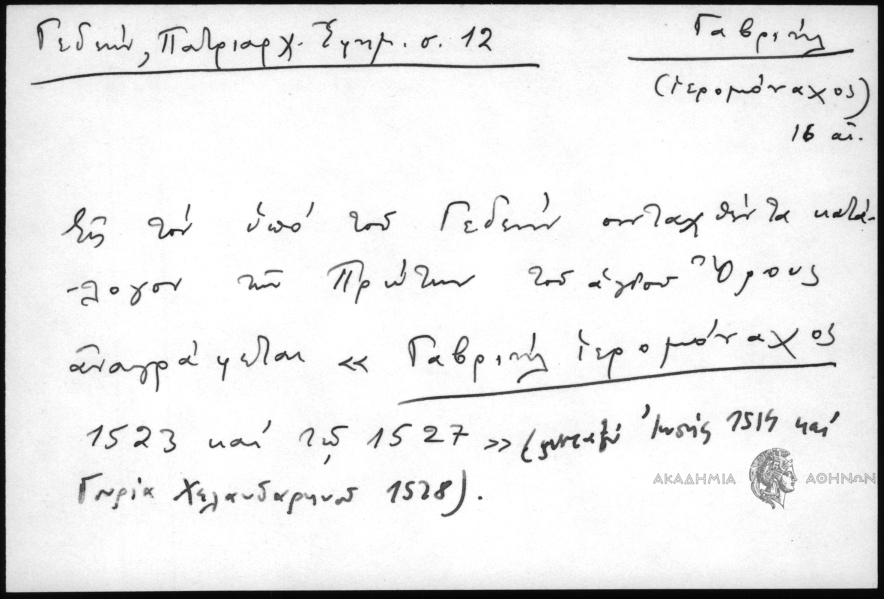 Γεδεών, Πατριαρχ. Ἐφημ. σ. 12
Γαβριήλ
(ἱερομόναχος)
16 αἰ.
Εἰς τὸν ὑπὸ τοῦ Γεδεὼν συνταχθέντα κατά-
-λογον τῶν Πρώτων τοῦ ἁγίου Ὄρους
ἀναγράφεται « Γαβριὴλ ἱερομόναχος
1523 καὶ τῷ 1527 » (μεταξὺ 1514 καὶ
Γυρία Χελανδαρηνοῦ 1528).
ΑΚΑΔΗΜΙΑ ΑΘΗΝΩΝ